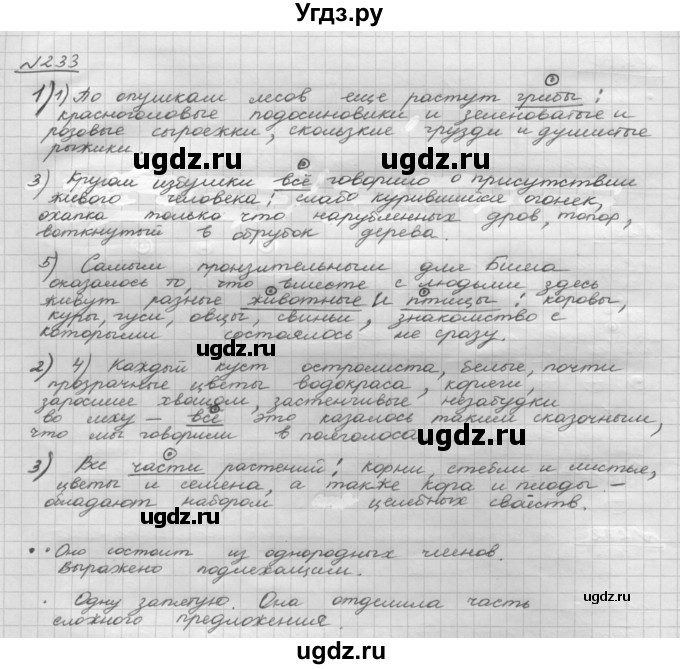 Угдз.ру
№233
1) 1) По опушкам лесов еще растут грибы:
красноголовые подосиновики и зеленоватые и
розовые сыроежки, скользкие грузди и душистые
рыжики
3) Кругом избушки всё говорило о присутствии
живого человека: слабо курившийся огонек,
охапка только что нарубленных дров, топор,
воткнутый в обрубок дерева.
5) Самым пронзительным для Бима
оказалось то, что вместе с людьми здесь
живут разные животные и птицы: коровы,
куры, гуси, овцы, свиньи, знакомство с
которыми состоялось не сразу.
2) 4) Каждый куст остролиста, белые, почти
прозрачные цветы водокраса, коряги,
заросшие хвощом, застенчивые незабудки
во мху – всё это казалось таким сказочным,
что мы говорили в полголоса
3) Все части растений: корни, стебли и листья,
цветы и семена, а также кора и плоды –
обладают набором целебных свойств.
Оно состоит из однородных членов.
Выражено подлежащим.
Одну запятую. Она отделила часть
сложного предложения.
ugdz.ru
ugdz.ru
ugdz.ru
ugdz.ru
ugdz.ru
ugdz.ru
ugdz.ru
ugdz.ru
ugdz.ru